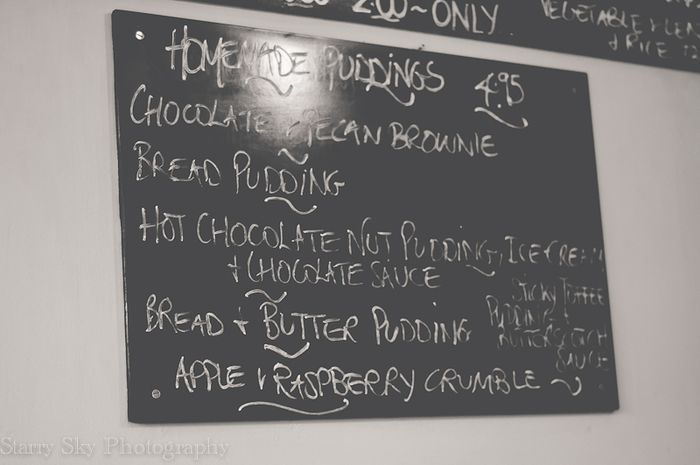 2.00~ONLY
VEGETABLE + LEN
+ RICE
HOMEMADE PUDDINGS 4.95
CHOCOLATE + PECAN BROWNIE
BREAD PUDDING
HOT CHOCOLATE NUT PUDDING, ICE-CREAM
+ CHOCOLATE SAUCE
STICKY TOFFEE
PUDDING +
BUTTERSCOTCH
SAUCE
BREAD + BUTTER PUDDING
APPLE + RASPBERRY CRUMBLE ~
Starry Sky Photography